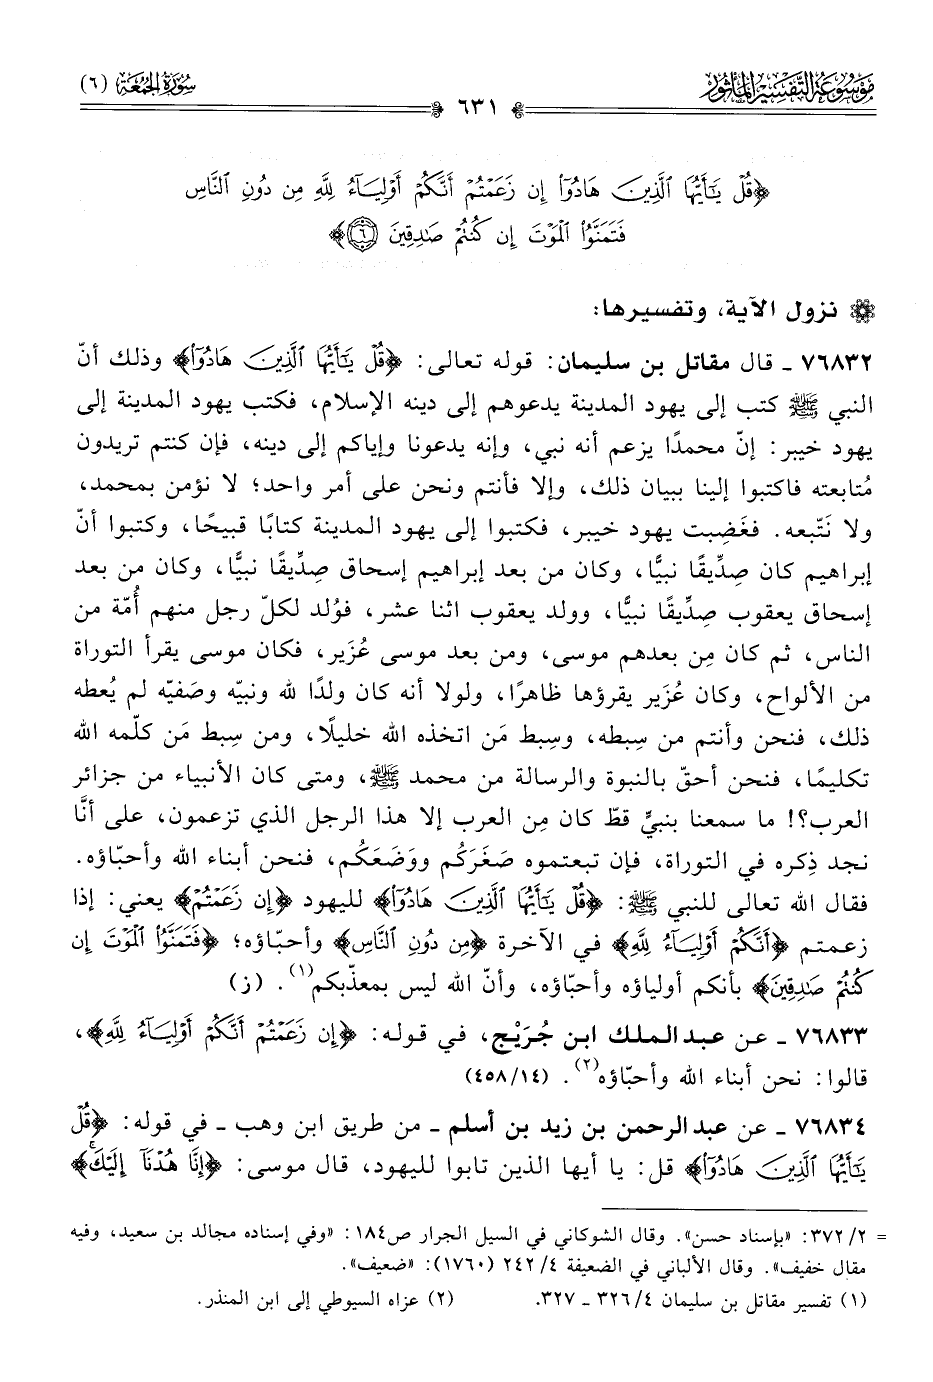 موسوعة التفسير المأثور
سورة الجمعة (٦)
٦٣١
﴿قُلْ يَٰٓأَيُّهَا ٱلَّذِينَ هَادُوٓا۟ إِن زَعَمْتُمْ أَنَّكُمْ أَوْلِيَآءُ لِلَّهِ مِن دُونِ ٱلنَّاسِ
فَتَمَنَّوُا۟ ٱلْمَوْتَ إِن كُنتُمْ صَٰدِقِينَ ٦﴾
نزول الآية، وتفسيرها:
٧٦٨٣٢ ـ قال مقاتل بن سليمان: قوله تعالى: ﴿قُلْ يَٰٓأَيُّهَا ٱلَّذِينَ هَادُوٓا۟﴾ وذلك أنّ
النبي ﷺ كتب إلى يهود المدينة يدعوهم إلى دينه الإسلام، فكتب يهود المدينة إلى
يهود خيبر: إنّ محمدًا يزعم أنه نبي، وإنه يدعونا وإياكم إلى دينه، فإن كنتم تريدون
مُتابعته فاكتبوا إلينا ببيان ذلك، وإلا فأنتم ونحن على أمر واحد؛ لا نؤمن بمحمد،
ولا نَتّبعه. فغَضِبت يهود خيبر، فكتبوا إلى يهود المدينة كتابًا قبيحًا، وكتبوا أنّ
إبراهيم كان صِدِّيقًا نبيًّا، وكان من بعد إبراهيم إسحاق صِدِّيقًا نبيًّا، وكان من بعد
إسحاق يعقوب صِدِّيقًا نبيًّا، وولد يعقوب اثنا عشر، فوُلد لكلّ رجل منهم أُمّة من
الناس، ثم كان مِن بعدهم موسى، ومن بعد موسى عُزَير، فكان موسى يقرأ التوراة
من الألواح، وكان عُزَير يقرؤها ظاهرًا، ولولا أنه كان ولدًا لله ونبيّه وصَفيّه لم يُعطه
ذلك، فنحن وأنتم من سِبطه، وسِبط مَن اتخذه الله خليلًا، ومن سِبط مَن كلّمه الله
تكليمًا، فنحن أحقّ بالنبوة والرسالة من محمد ﷺ، ومتى كان الأنبياء من جزائر
العرب؟! ما سمعنا بنبيٍّ قطّ كان مِن العرب إلا هذا الرجل الذي تزعمون، على أنَّا
نجد ذِكره في التوراة، فإن تبعتموه صَغَركُم ووَضَعَكُم، فنحن أبناء الله وأحبّاؤه.
فقال الله تعالى للنبي ﷺ: ﴿قُلْ يَٰٓأَيُّهَا ٱلَّذِينَ هَادُوٓا۟﴾ لليهود ﴿إِن زَعَمْتُمْ﴾ يعني: إذا
زعمتم ﴿أَنَّكُمْ أَوْلِيَآءُ لِلَّهِ﴾ في الآخرة ﴿مِن دُونِ ٱلنَّاسِ﴾ وأحبّاؤه؛ ﴿فَتَمَنَّوُا۟ ٱلْمَوْتَ إِن
كُنتُمْ صَٰدِقِينَ﴾ بأنكم أولياؤه وأحبّاؤه، وأنّ الله ليس بمعذّبكم(١). (ز)
٧٦٨٣٣ ـ عن عبدالملك ابن جُرَيْج، في قوله: ﴿إِن زَعَمْتُمْ أَنَّكُمْ أَوْلِيَآءُ لِلَّهِ﴾،
قالوا: نحن أبناء الله وأحبّاؤه(٢). (١٤/٤٥٨)
٧٦٨٣٤ ـ عن عبدالرحمن بن زيد بن أسلم ـ من طريق ابن وهب ـ في قوله: ﴿قُلْ
يَٰٓأَيُّهَا ٱلَّذِينَ هَادُوٓا۟﴾ قل: يا أيها الذين تابوا لليهود، قال موسى: ﴿إِنَّا هُدْنَآ إِلَيْكَ﴾
= ٢/ ٣٧٢: «بإسناد حسن». وقال الشوكاني في السيل الجرار ص١٨٤: «وفي إسناده مجالد بن سعيد، وفيه
مقال خفيف». وقال الألباني في الضعيفة ٤/ ٢٤٢ (١٧٦٠): «ضعيف».
(١) تفسير مقاتل بن سليمان ٤/ ٣٢٦ ـ ٣٢٧. (٢) عزاه السيوطي إلى ابن المنذر.